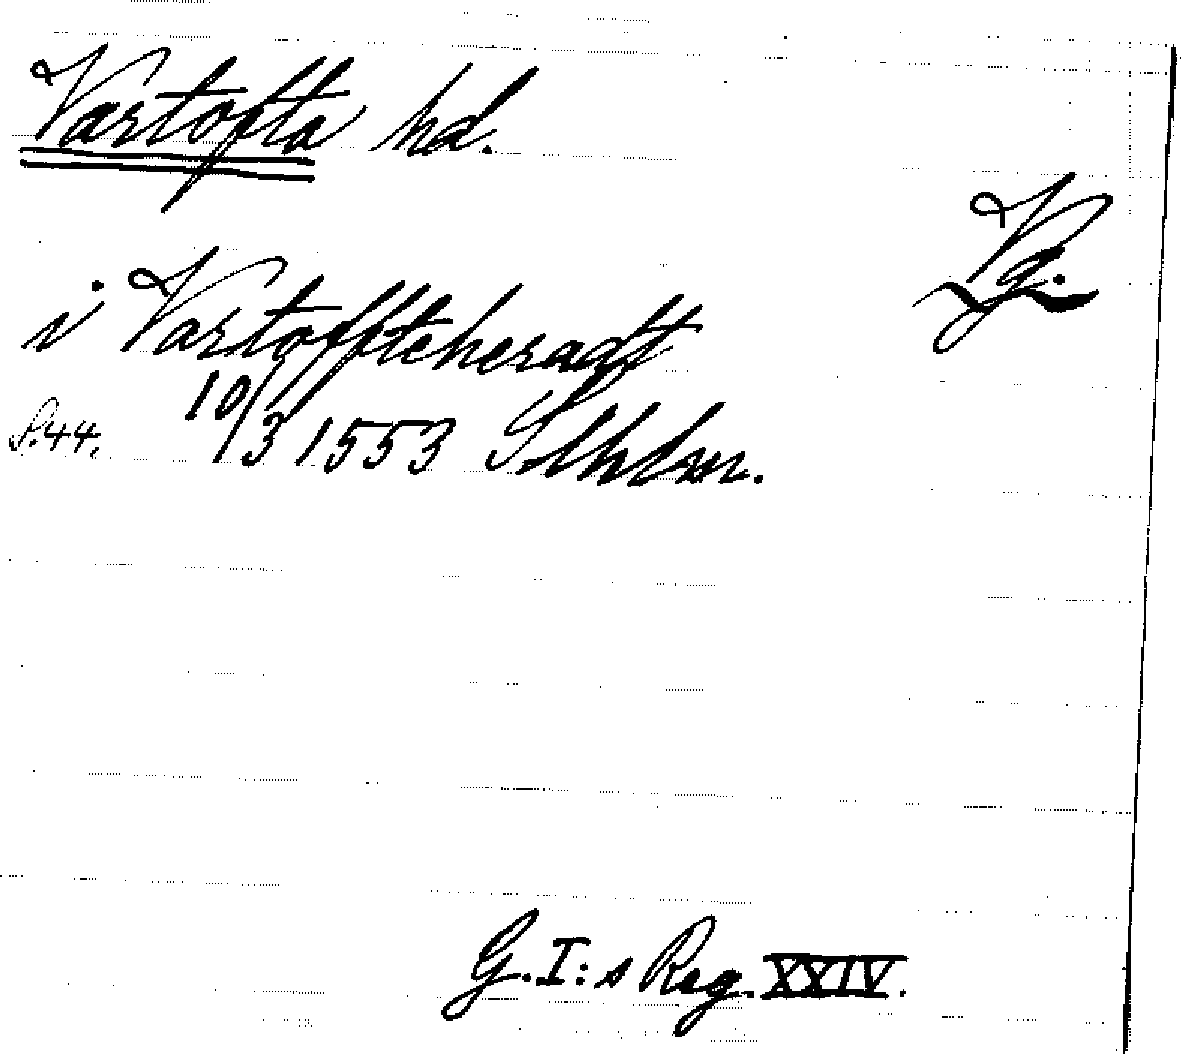 Vartofta hd.
Vg.
i Vartofftcheradt
S. 44. 10/3 1553 Sthlm.
G. I:s Reg. XXIV.